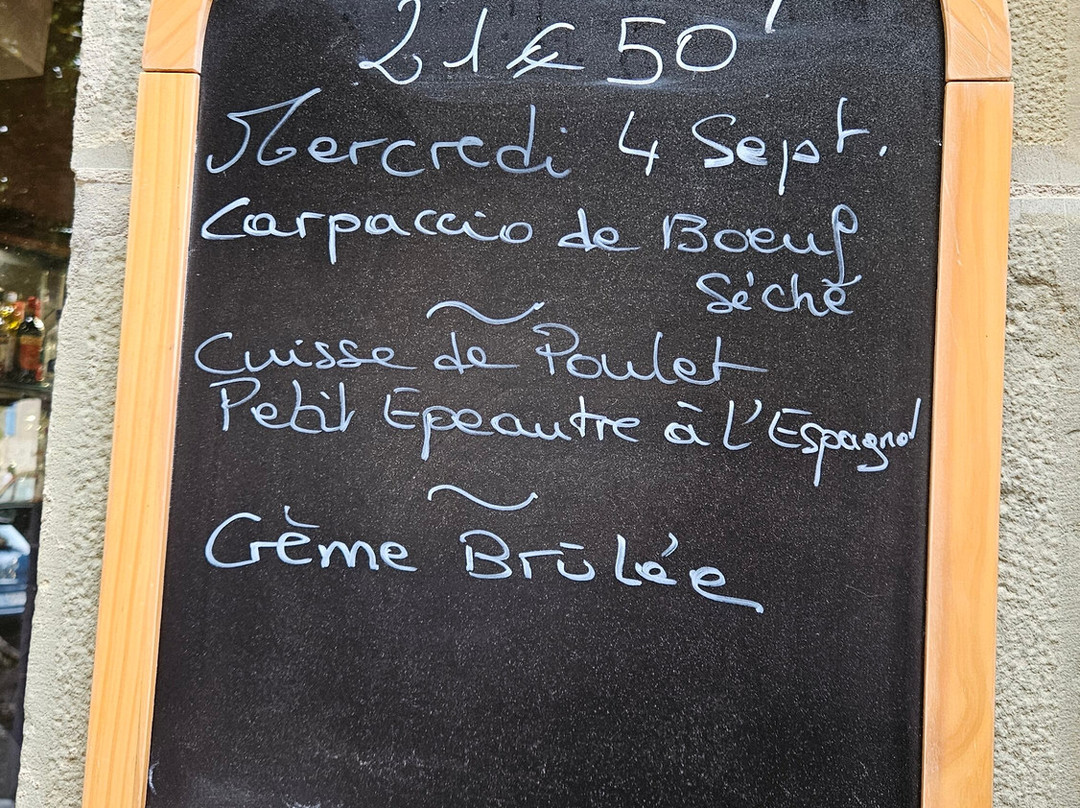 21€50
Mercredi 4 Sept.
Carpaccio de Boeuf
Séché
~
Cuisse de Poulet
Petit Epeautre à l'Espagnol
~
Crème Brûlée